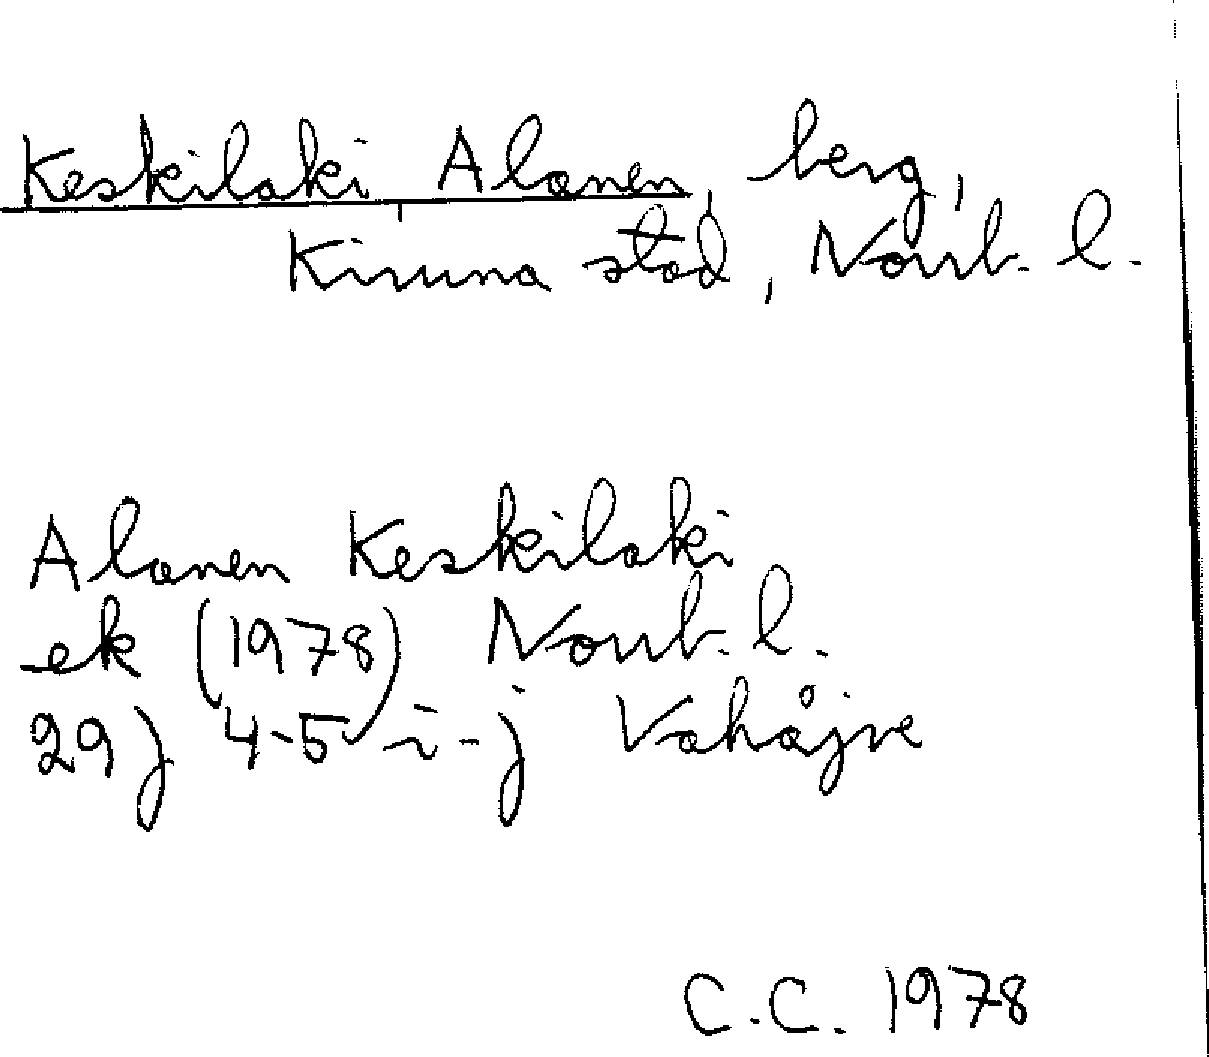 Keskilaki, Alanen, berg,
Kiruna stad, Norrb. l.
Alanen Keskilaki
ek (1978) Norrb. l.
29 j 4-5 i-j Vahåjve
C.C. 1978